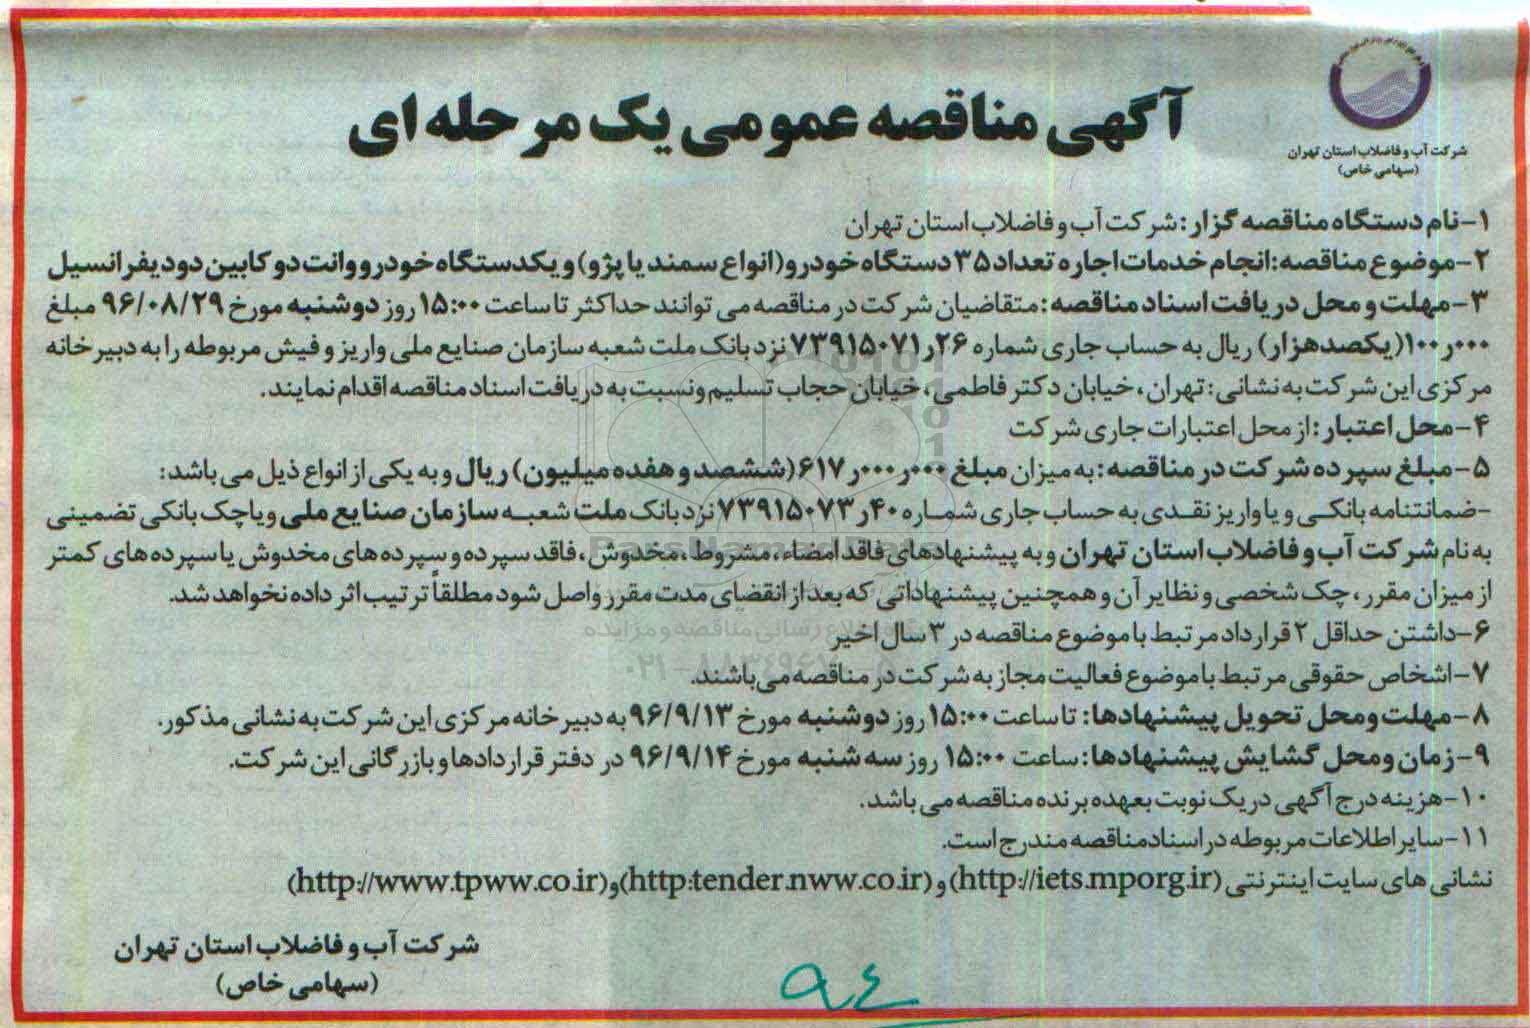 آگهی مناقصه عمومی یک مرحله ای
شرکت آب و فاضلاب استان تهران
(سهامی خاص)
۱-نام دستگاه مناقصه گزار: شرکت آب و فاضلاب استان تهران
۲-موضوع مناقصه: انجام خدمات اجاره تعداد ۳۵ دستگاه خودرو (انواع سمند یا پژو) و یکدستگاه خودرو وانت دو کابین دو دیفرانسیل
۳-مهلت و محل دریافت اسناد مناقصه: متقاضیان شرکت در مناقصه می توانند حداکثر تا ساعت ۱۵:۰۰ روز دوشنبه مورخ ۹۶/۰۸/۲۹ مبلغ
۱۰۰ر۰۰۰ (یکصدهزار) ریال به حساب جاری شماره ۷۳۹۱۵۰۷۱ر۲۶ نزد بانک ملت شعبه سازمان صنایع ملی واریز و فیش مربوطه را به دبیرخانه
مرکزی این شرکت به نشانی: تهران، خیابان دکتر فاطمی، خیابان حجاب تسلیم ونسبت به دریافت اسناد مناقصه اقدام نمایند.
۴-محل اعتبار: از محل اعتبارات جاری شرکت
۵-مبلغ سپرده شرکت در مناقصه: به میزان مبلغ ۶۱۷ر۰۰۰ر۰۰۰ (ششصد و هفده میلیون) ریال و به یکی از انواع ذیل می باشد:
-ضمانتنامه بانکی و یا واریز نقدی به حساب جاری شماره ۷۳۹۱۵۰۷۳ر۴۰ نزد بانک ملت شعبه سازمان صنایع ملی ویا چک بانکی تضمینی
به نام شرکت آب و فاضلاب استان تهران و به پیشنهادهای فاقد امضاء، مشروط، مخدوش، فاقد سپرده و سپرده های مخدوش یا سپرده های کمتر
از میزان مقرر، چک شخصی و نظایر آن و همچنین پیشنهاداتی که بعد از انقضای مدت مقرر واصل شود مطلقاً ترتیب اثر داده نخواهد شد.
۶-داشتن حداقل ۲ قرارداد مرتبط با موضوع مناقصه در ۳ سال اخیر
۷-اشخاص حقوقی مرتبط با موضوع فعالیت مجاز به شرکت در مناقصه می باشند.
۸-مهلت ومحل تحویل پیشنهادها: تا ساعت ۱۵:۰۰ روز دوشنبه مورخ ۹۶/۹/۱۳ به دبیرخانه مرکزی این شرکت به نشانی مذکور.
۹-زمان ومحل گشایش پیشنهادها: ساعت ۱۵:۰۰ روز سه شنبه مورخ ۹۶/۹/۱۴ در دفتر قراردادها و بازرگانی این شرکت.
۱۰-هزینه درج آگهی در یک نوبت بعهده برنده مناقصه می باشد.
۱۱-سایر اطلاعات مربوطه در اسناد مناقصه مندرج است.
نشانی های سایت اینترنتی (http://iets.mporg.ir) و (http:tender.nww.co.ir) و (http://www.tpww.co.ir)
شرکت آب و فاضلاب استان تهران
(سهامی خاص)